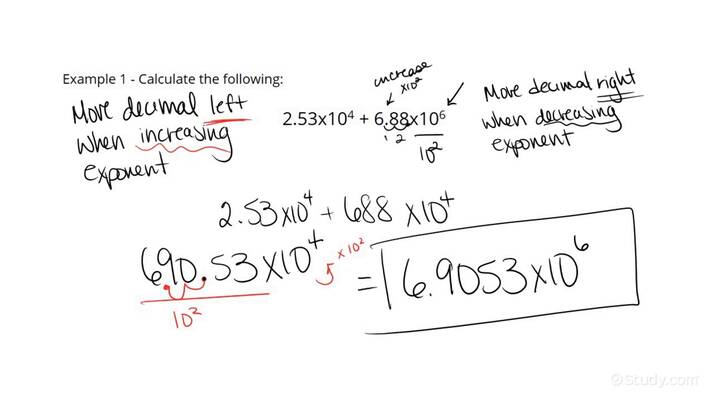 Example 1 - Calculate the following:
increase
x10²
Move decimal left
when increasing
exponent
2.53x10⁴ + 6.88x10⁶
1 2
10²
Move decimal right
when decreasing
exponent
2.53x10⁴ + 688 x10⁴
690.53x10⁴
x10²
10²
= 6.9053x10⁶
©Study.com